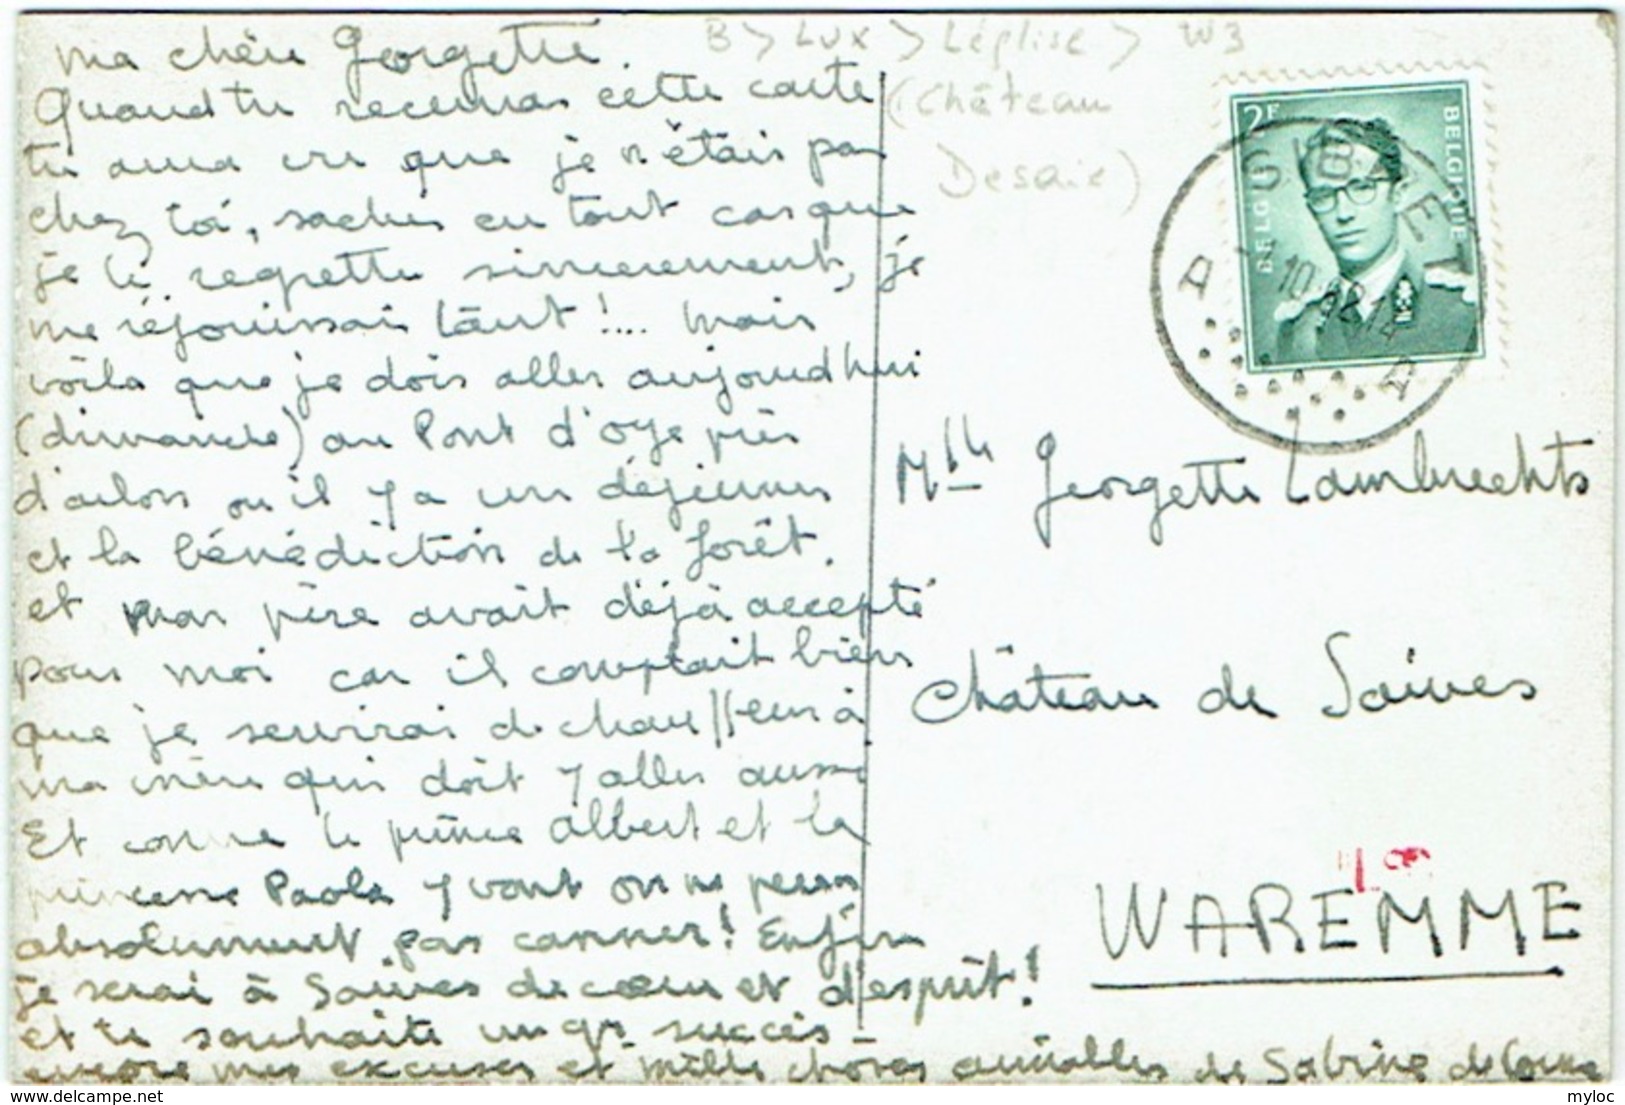 ma chère Georgette
Quand tu recevras cette carte
tu auras vu que je n'étais pas
chez toi, saches en tout cas que
je le regrette sincèrement, je
me réjouissais tant !.... Mais
voila que je dois aller aujourd'hui
(dimanche) au Pont d'Oye près
d'arlon ou il y a un déjeuner
et la bénédiction de la forêt.
et mon père avait déjà accepté
pour moi car il comptait bien
que je servirai de chauffeur à
ma mère qui doit y aller aussi
Et comme le prince Albert et la
princesse Paola y vont on ne peut
absolument pas canner! Enfin
je serai à Saives de cœur et d'esprit!
et te souhaite un gr. succès -
encore mes excuses et mille choses aimables de Sabine de
B > Lux > Léglise > W3
(Château
Desaie)
2F
BELGIQUE
BELGIE
10
Mlle Georgette Lambrechts
Château de Saives
WAREMME
myloc